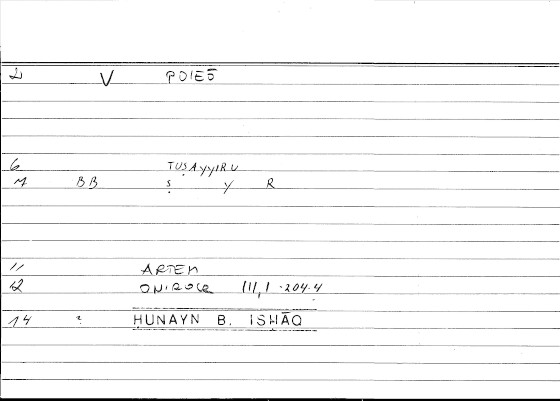 2 V POIEŌ
6 TUṢAYYIRU
7 BB Ṣ Y R
11 ARTEM
12 ONIROCR III,1 -204.4
14 ? ḤUNAYN B. ISḤĀQ